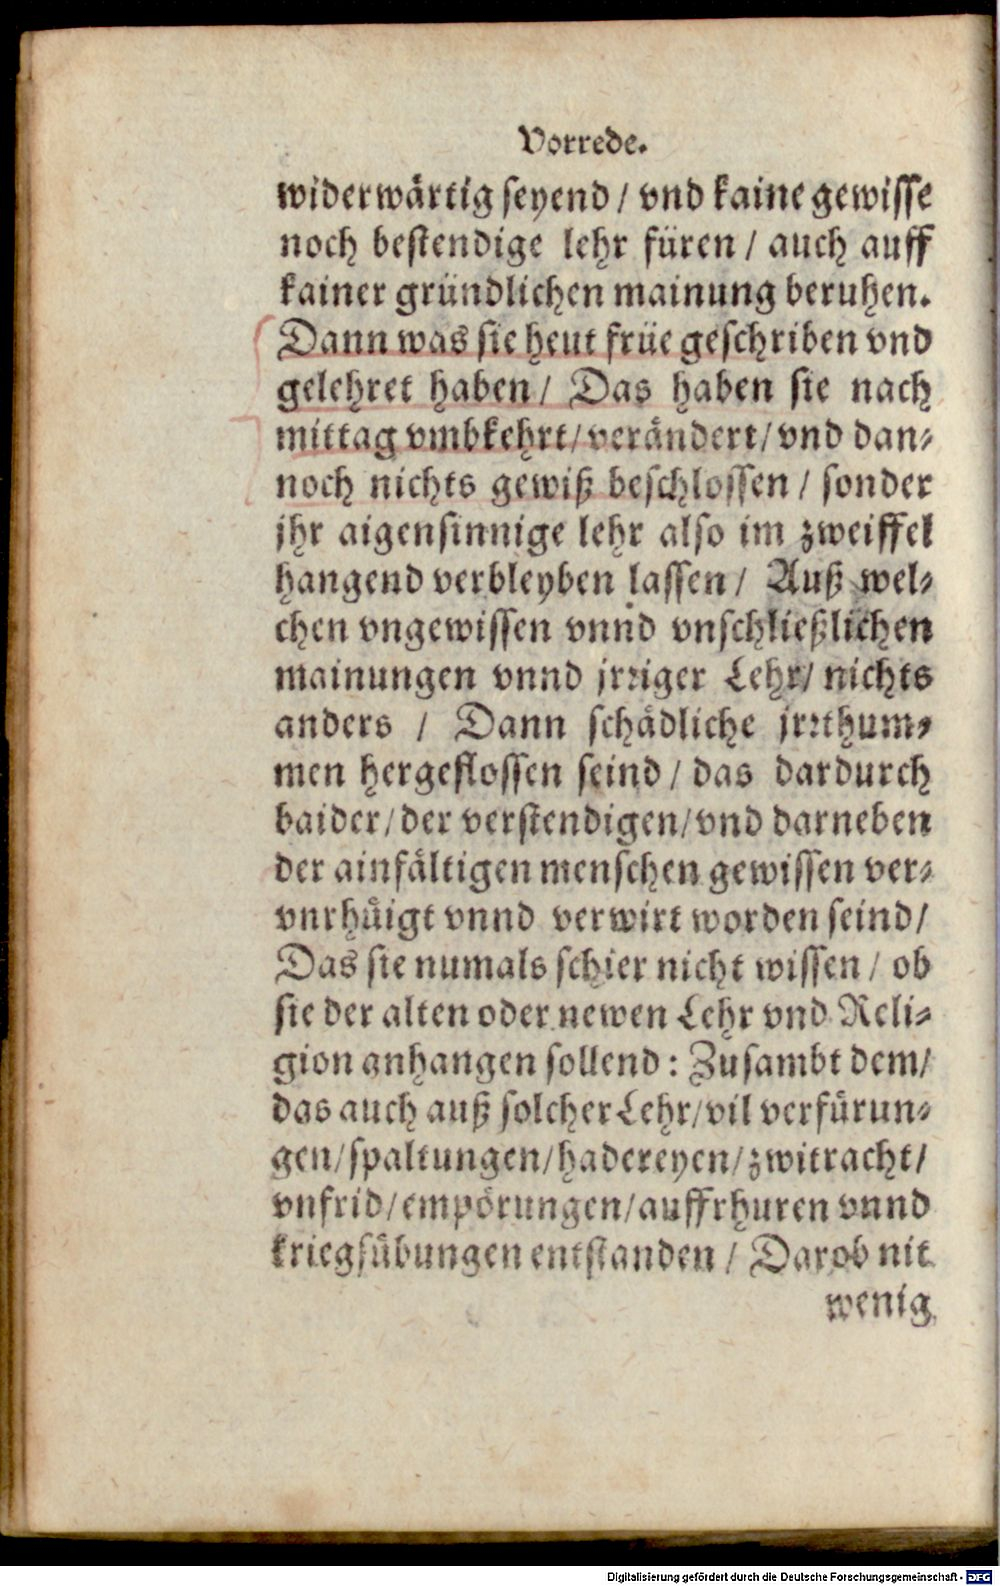 Vorrede.
widerwärtig seyend / vnd kaine gewisse
noch bestendige lehr füren / auch auff
kainer gründlichen mainung beruhen.
Dann was sie heut früe geschriben vnd
gelehret haben / Das haben sie nach
mittag vmbkehrt / verändert / vnd dan-
noch nichts gewiß beschlossen / sonder
jhr aigensinnige lehr also im zweiffel
hangend verbleyben lassen / Auß wel-
chen vngewissen vnnd vnschließlichen
mainungen vnnd jrriger Lehr / nichts
anders / Dann schädliche jrrthum-
men hergeflossen seind / das dardurch
baider / der verstendigen / vnd darneben
der ainfältigen menschen gewissen ver-
vnrhüigt vnnd verwirt worden seind /
Das sie numals schier nicht wissen / ob
sie der alten oder newen Lehr vnd Reli-
gion anhangen sollend : Zusambt dem /
das auch auß solcher Lehr / vil verfürun-
gen / spaltungen / hadereyen / zwitracht /
vnfrid / empörungen / auffrhuren vnnd
kriegsübungen entstanden / Darob nit
wenig
Digitalisierung gefördert durch die Deutsche Forschungsgemeinschaft - DFG